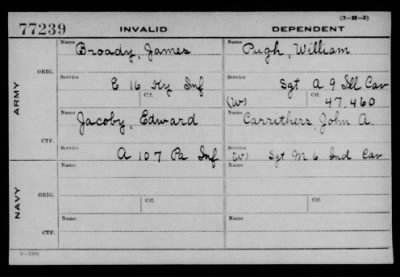 (3-H-5)
77239 INVALID DEPENDENT
Name Name
Broady, James Pugh, William
ORIG. Service Service
E 16 Ky Inf Sgt A 9 Ill Cav
Ctf. (W) Ctf. 47.460
ARMY
Name Name
Jacoby, Edward Carrithers, John A.
CTF. Service Service
A 107 Pa Inf (W) Sgt M 6 Ind Cav
Name Name
ORIG. Service Service
Ctf. Ctf.
NAVY
Name Name
CTF.